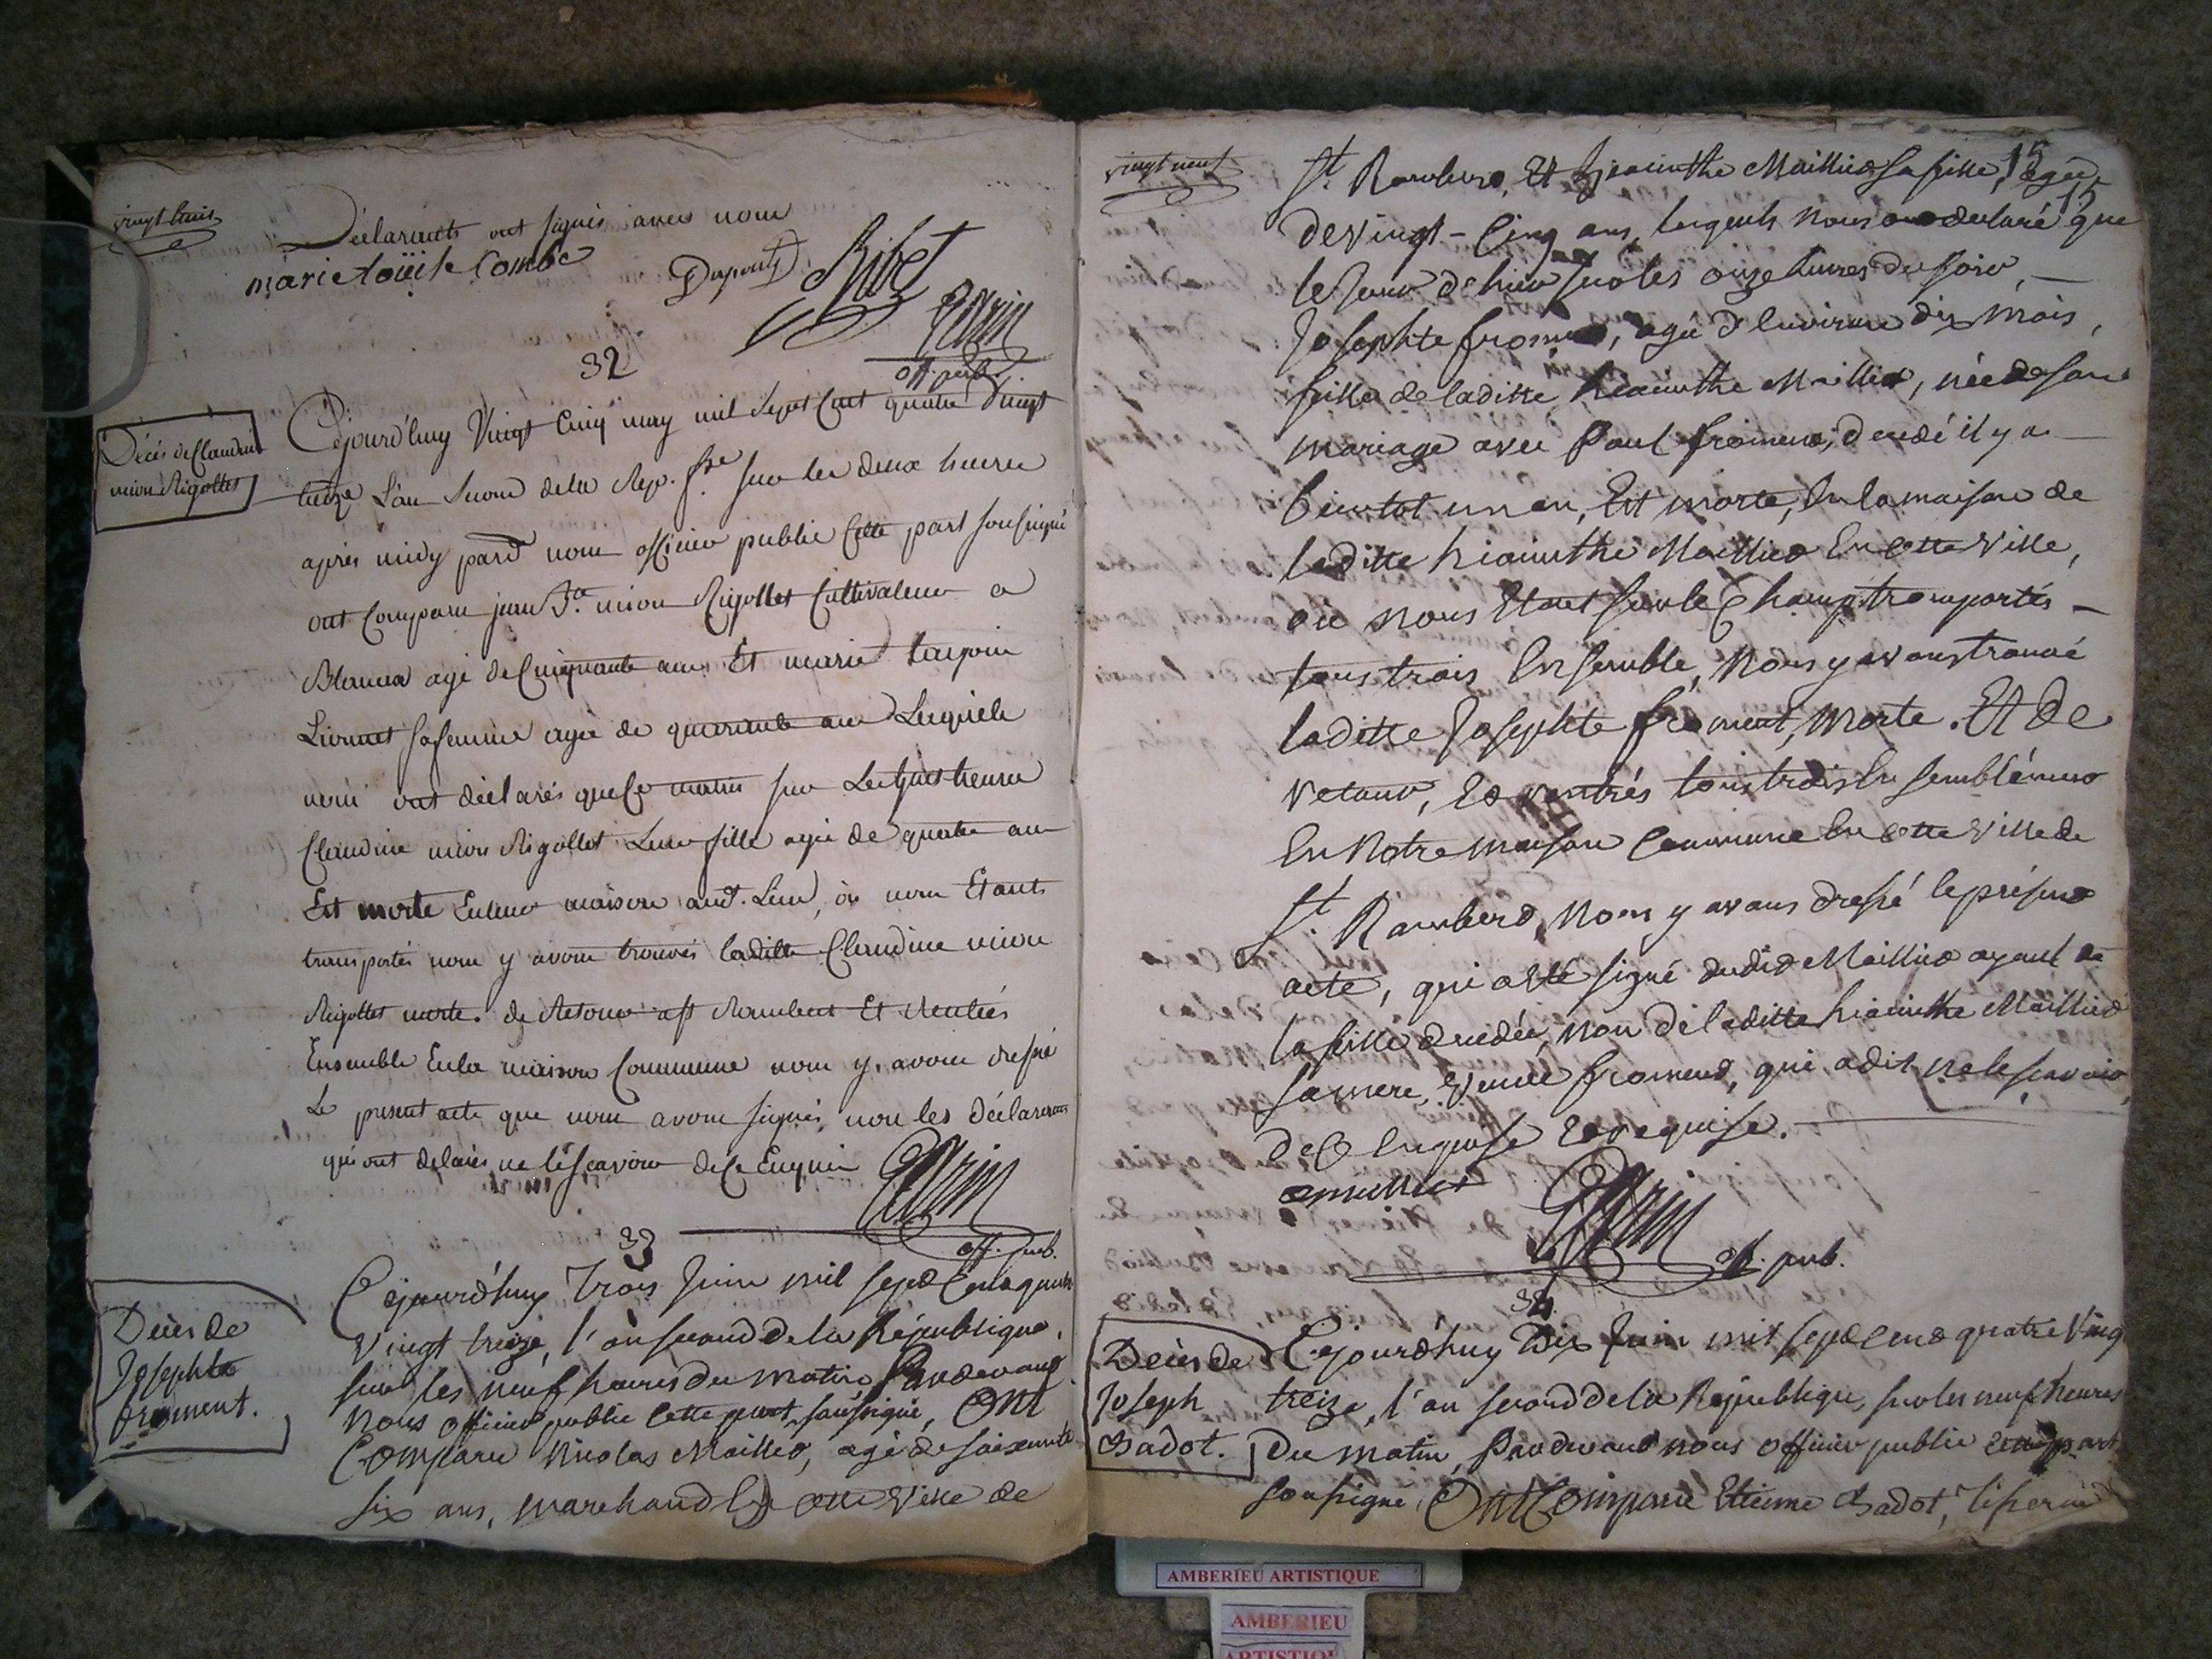 vingt huit
Déclarants ont signés avec nous
marie loüise Combe
Dupont Ribet
Garin
off. pub.
32
Décès de Claudine
mion Rigollet
Cejourd'huy vingt Cinq may mil Sept Cent quatre vingt
treize L'an Second de la Rep. fse sur les deux heures
après midy pard. nous officier public Cette part soussigné
ont Comparu jean Bte mion Rigollet Cultivateur a
Blanaz agé de Cinquante ans Et marie
Lionnet sa femme agée de quarante ans Lesquels
nous ont déclarés que Ce matin sur Les huit heures
Claudine mion Rigollet Leur fille agée de quatre ans
Est morte En leur maison aud. Lieu, où nous Etants
transportés nous y avons trouvés ladite Claudine mion
Rigollet morte. de Retour a st Rambert Et Rentrés
Ensemble En la maison Commune nous y avons dressé
Le present acte que nous avons signés, non les déclarants
qui ont delarés ne le scavoir de Ce Enquis
Garin
off. pub.
33
Décès de
Josephte
froment.
Cejourd'huy trois Juin mil sept Cent quatre
vingt treize, l'an second de la République,
sur les neuf heures du matin, Pardevant
nous officier public cette part soussigné, Ont
Comparu Nicolas Maillet, agé de soixante
six ans, marchand En cette ville de
vingt neuf
15
15
St. Rambert, Et hiacinthe Mailliet sa fille, agée
de vingt-Cinq ans, lesquels nous ont declaré que
le jour d'hier sur les onze heures du soir,
Josephte froment, agée d'Environ dix mois,
fille de laditte hiacinthe Mailliet, née de son
mariage avec Paul froment, decedé il y a
bientot un an, Est morte, En la maison de
laditte hiacinthe Mailliet En cette ville,
où nous Etant sur le Champ transportés
tous trois Ensemble, Nous y avons trouvé
laditte Josephte froment, Morte. Et de
retour, Et rentrés tous trois Ensemblément
En Notre maison Commune En cette ville de
St. Rambert, Nous y avons dressé le présent
acte, qui a été signé dudit Mailliet ayeul de
la fille decedée, non de laditte hiacinthe Mailliet
sa mere, veuve froment, qui a dit ne le scavoir,
de Ce Enquise Et requise.
Garin
off. pub.
34
Décès de
Joseph
Badot.
Cejourd'huy Dix Juin mil sept Cent quatre Vingt
treize, l'an second de la République, sur les neuf heures
Du matin, Pardevant nous officier public cette part
soussigné, Ont Comparu Etienne Badot, tisserand
AMBERIEU ARTISTIQUE
AMBERIEU
ARTISTIQUE